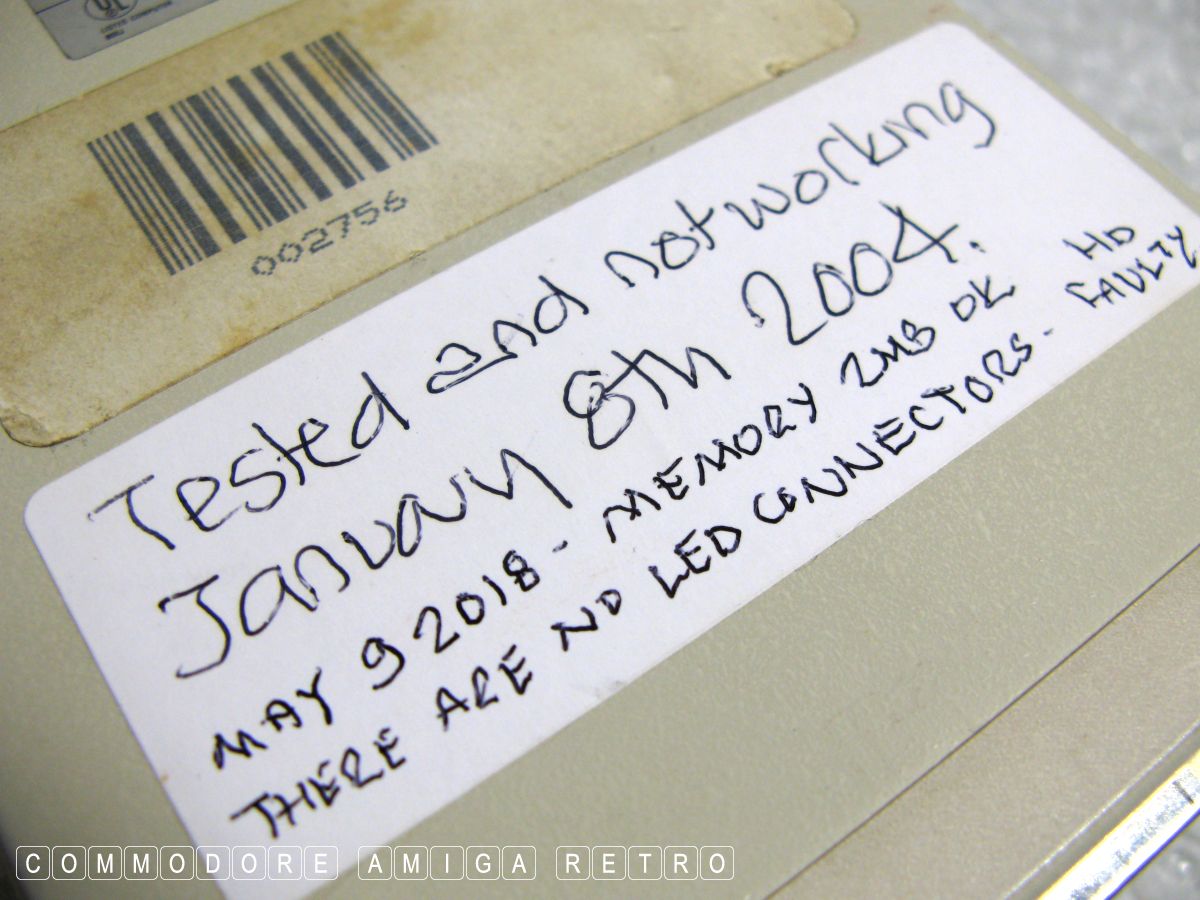 UL
LISTED COMPUTER
002756
Tested and not working
January 8th 2004.
MAY 9 2018 - MEMORY 2MB OK HD
THERE ARE NO LED CONNECTORS. FAULTY
COMMODORE AMIGA RETRO